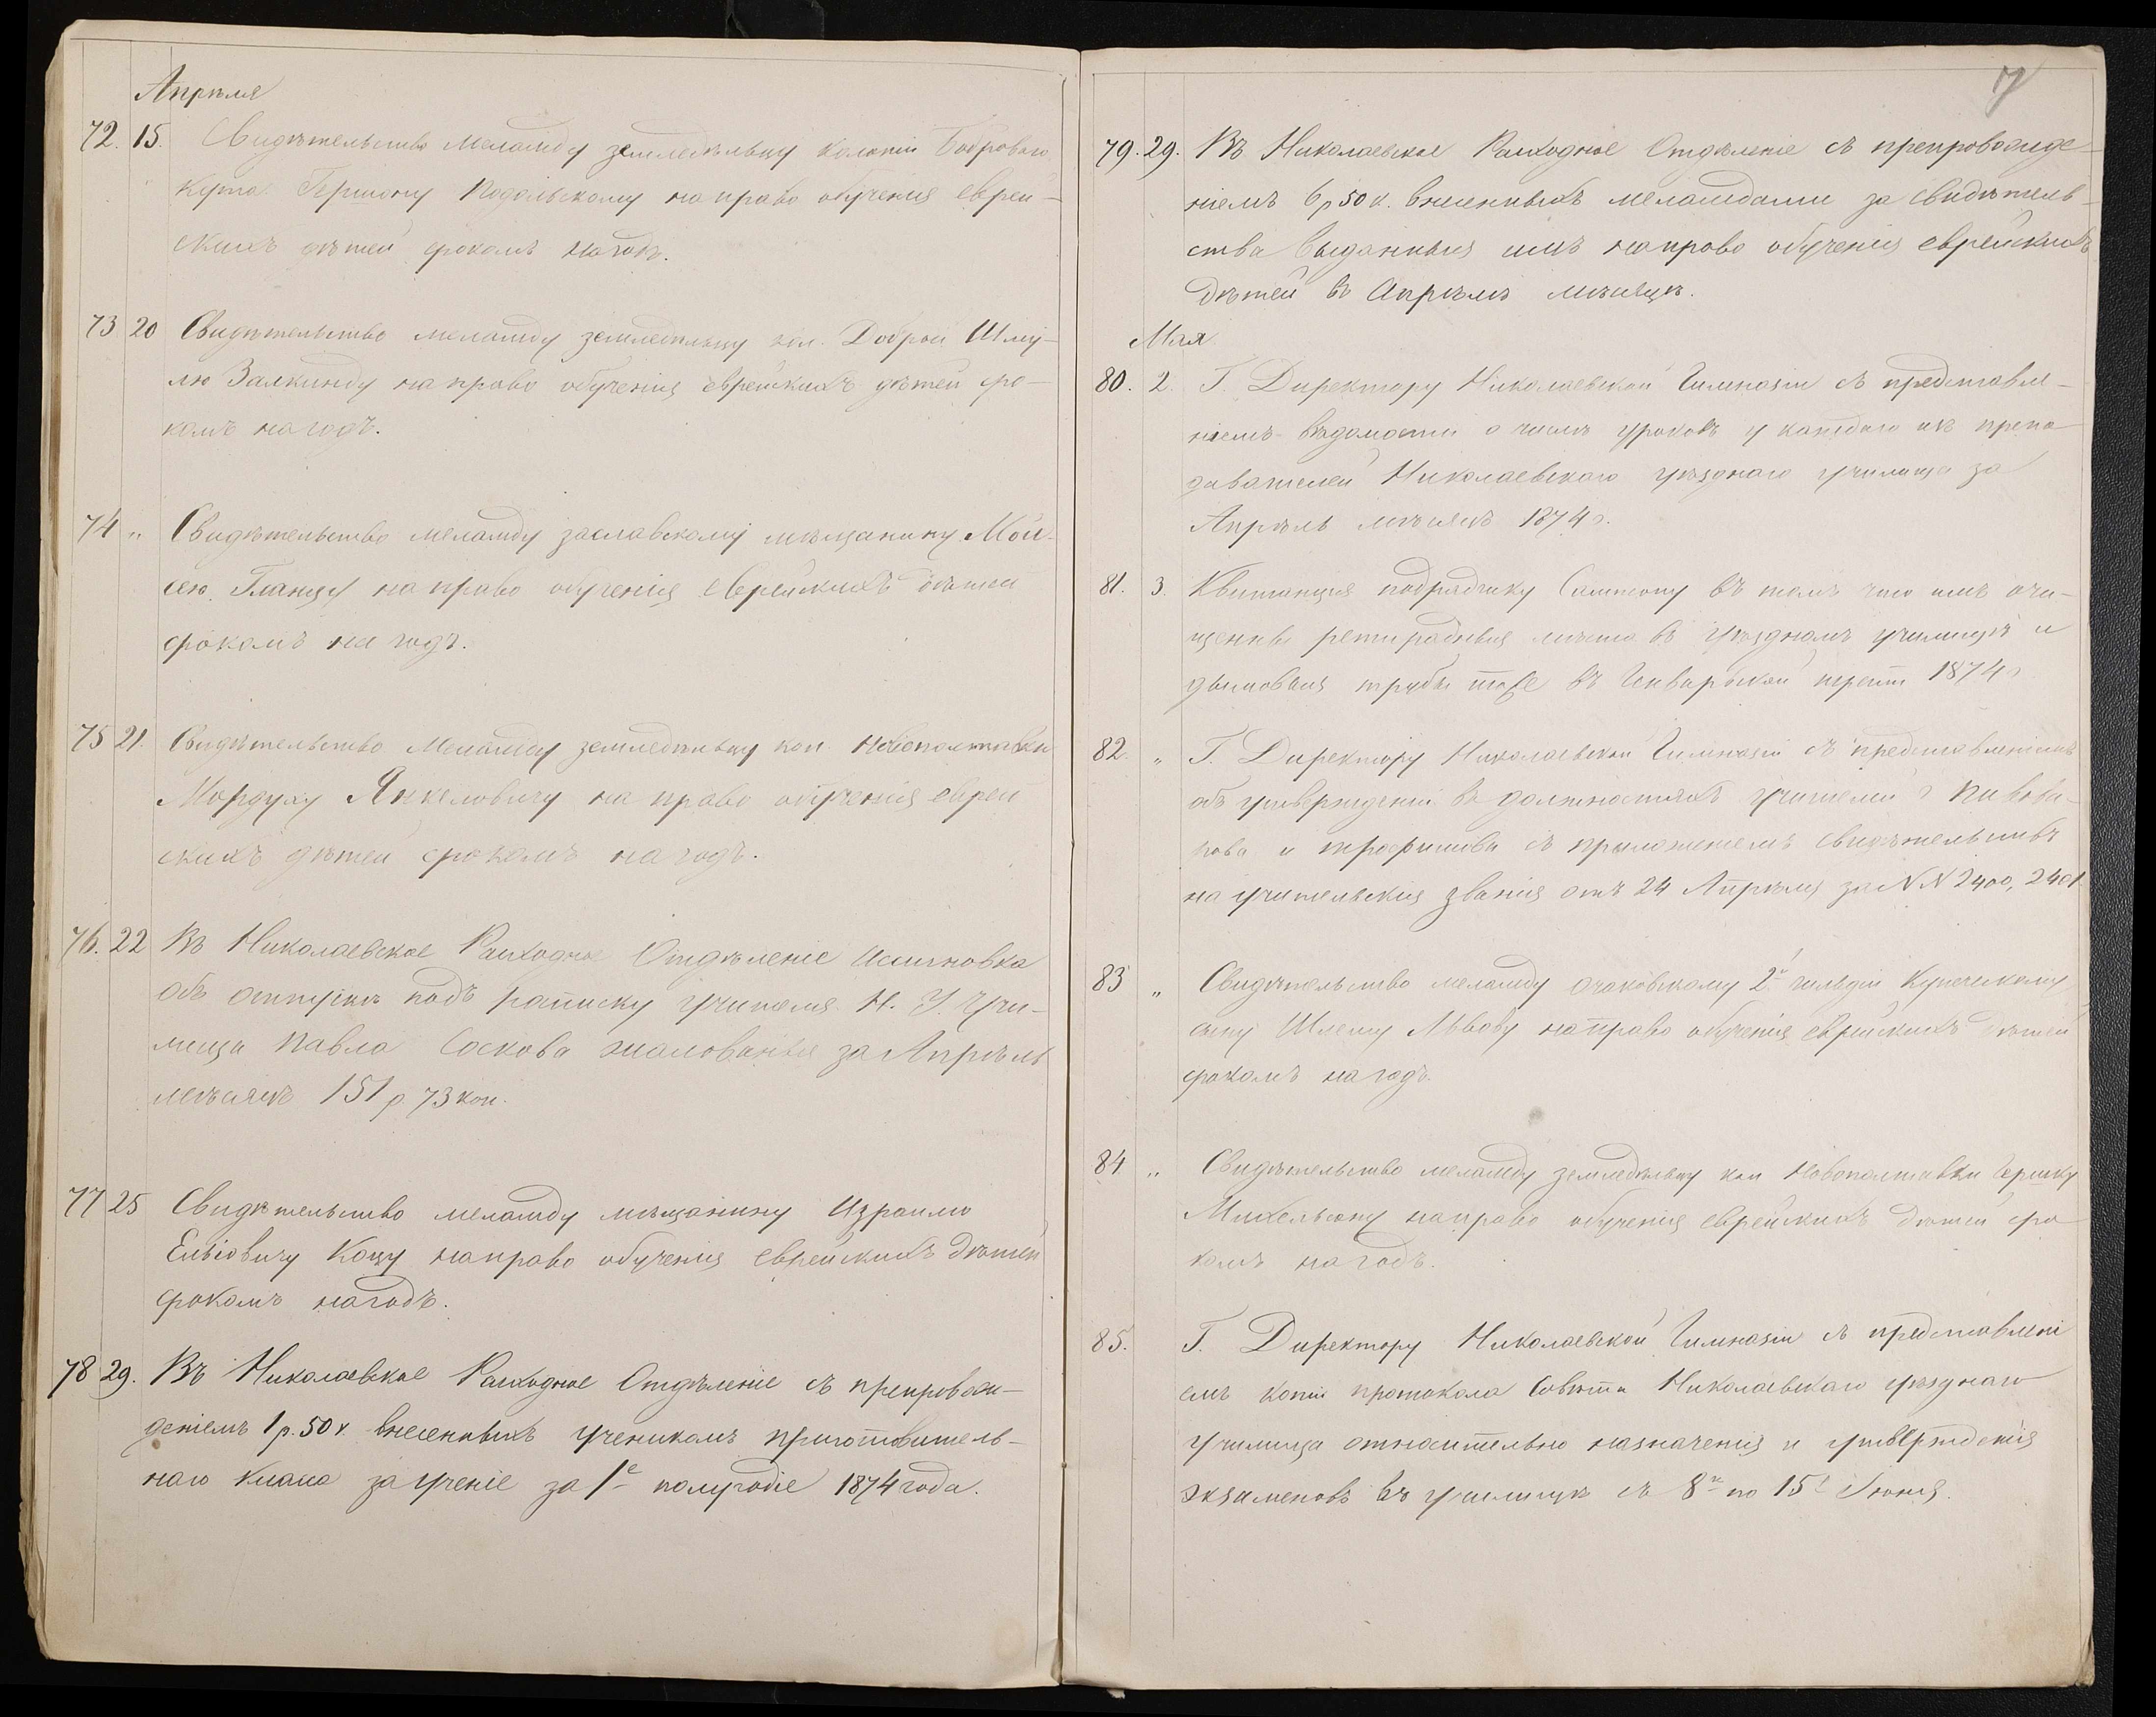 Апрѣля
72. 15. Свидѣтельство меламду земледѣльцу колоніи Боброваго
Кута Гершону Подольскому на право обученія еврей-
скихъ дѣтей срокомъ на годъ.
73 20 Свидѣтельство меламду земледѣльцу кол. Доброй Шму-
лю Залкинду на право обученія еврейскихъ дѣтей сро-
комъ на годъ.
74 „ Свидѣтельство меламду заславскому мѣщанину Мой-
сею Гланцу на право обученія еврейскихъ дѣтей
срокомъ на годъ.
75 21. Свидѣтельство меламду земледѣльцу кол. Новополтавки
Мордуху Янкеловичу на право обученія еврей
скихъ дѣтей срокомъ на годъ.
76. 22 Въ Николаевское Расходное Отдѣленіе
объ отпускѣ подъ расписку учителя Н. У. Учи-
лища Павла Соскова жалованья за Апрѣль
мѣсяцъ 151 р. 73 коп.
77 25 Свидѣтельство меламду мѣщанину Израилю
Ельіовичу Коцу на право обученія еврейскихъ дѣтей
срокомъ на годъ.
78 29. Въ Николаевское Расходное Отдѣленіе съ препровож-
деніемъ 1 р. 50 к. внесенныхъ ученикомъ приготовитель-
наго класса за ученіе за 1е полугодіе 1874 года.
7
79. 29. Въ Николаевское Расходное Отдѣленіе съ препровожде-
ніемъ 6 р 50 к. внесенныхъ меламдами за свидѣтель-
ства выданныя имъ на право обученія еврейскихъ
дѣтей въ Апрѣлѣ мѣсяцѣ.
Мая
80. 2. Г. Директору Николаевской Гимназіи съ представле-
ніемъ вѣдомости о числѣ уроковъ у каждаго изъ препо-
давателей Николаевскаго уѣзднаго училища за
Апрѣль мѣсяцъ 1874 г.
81. 3. Квитанція подрядчику въ томъ что имъ очи-
щены ретирадныя мѣста въ Уѣздномъ училищѣ и
дымовыя трубы въ Январской трети 1874 г
82. „ Г. Директору Николаевской Гимназіи съ представленіемъ
объ утвержденіи въ должностяхъ учителей г Пивова-
рова и Трофимова съ приложеніемъ свидѣтельствъ
на учительскія званія отъ 24 Апрѣля за NN 2400, 2401
83 „ Свидѣтельство меламду очаковскому 2й гильдіи Купеческому
сыну Шлему Львову на право обученія еврейскихъ дѣтей
срокомъ на годъ.
84 „ Свидѣтельство меламду земледѣльцу кол Новополтавки Гершку
Михельсону на право обученія еврейскихъ дѣтей сро
комъ на годъ.
85. Г. Директору Николаевской Гимназіи съ представлені
емъ копіи протокола Совѣта Николаевскаго уѣзднаго
училища относительно назначенія и утвержденія
экзаменовъ въ училищѣ съ 8го по 15е Іюня.